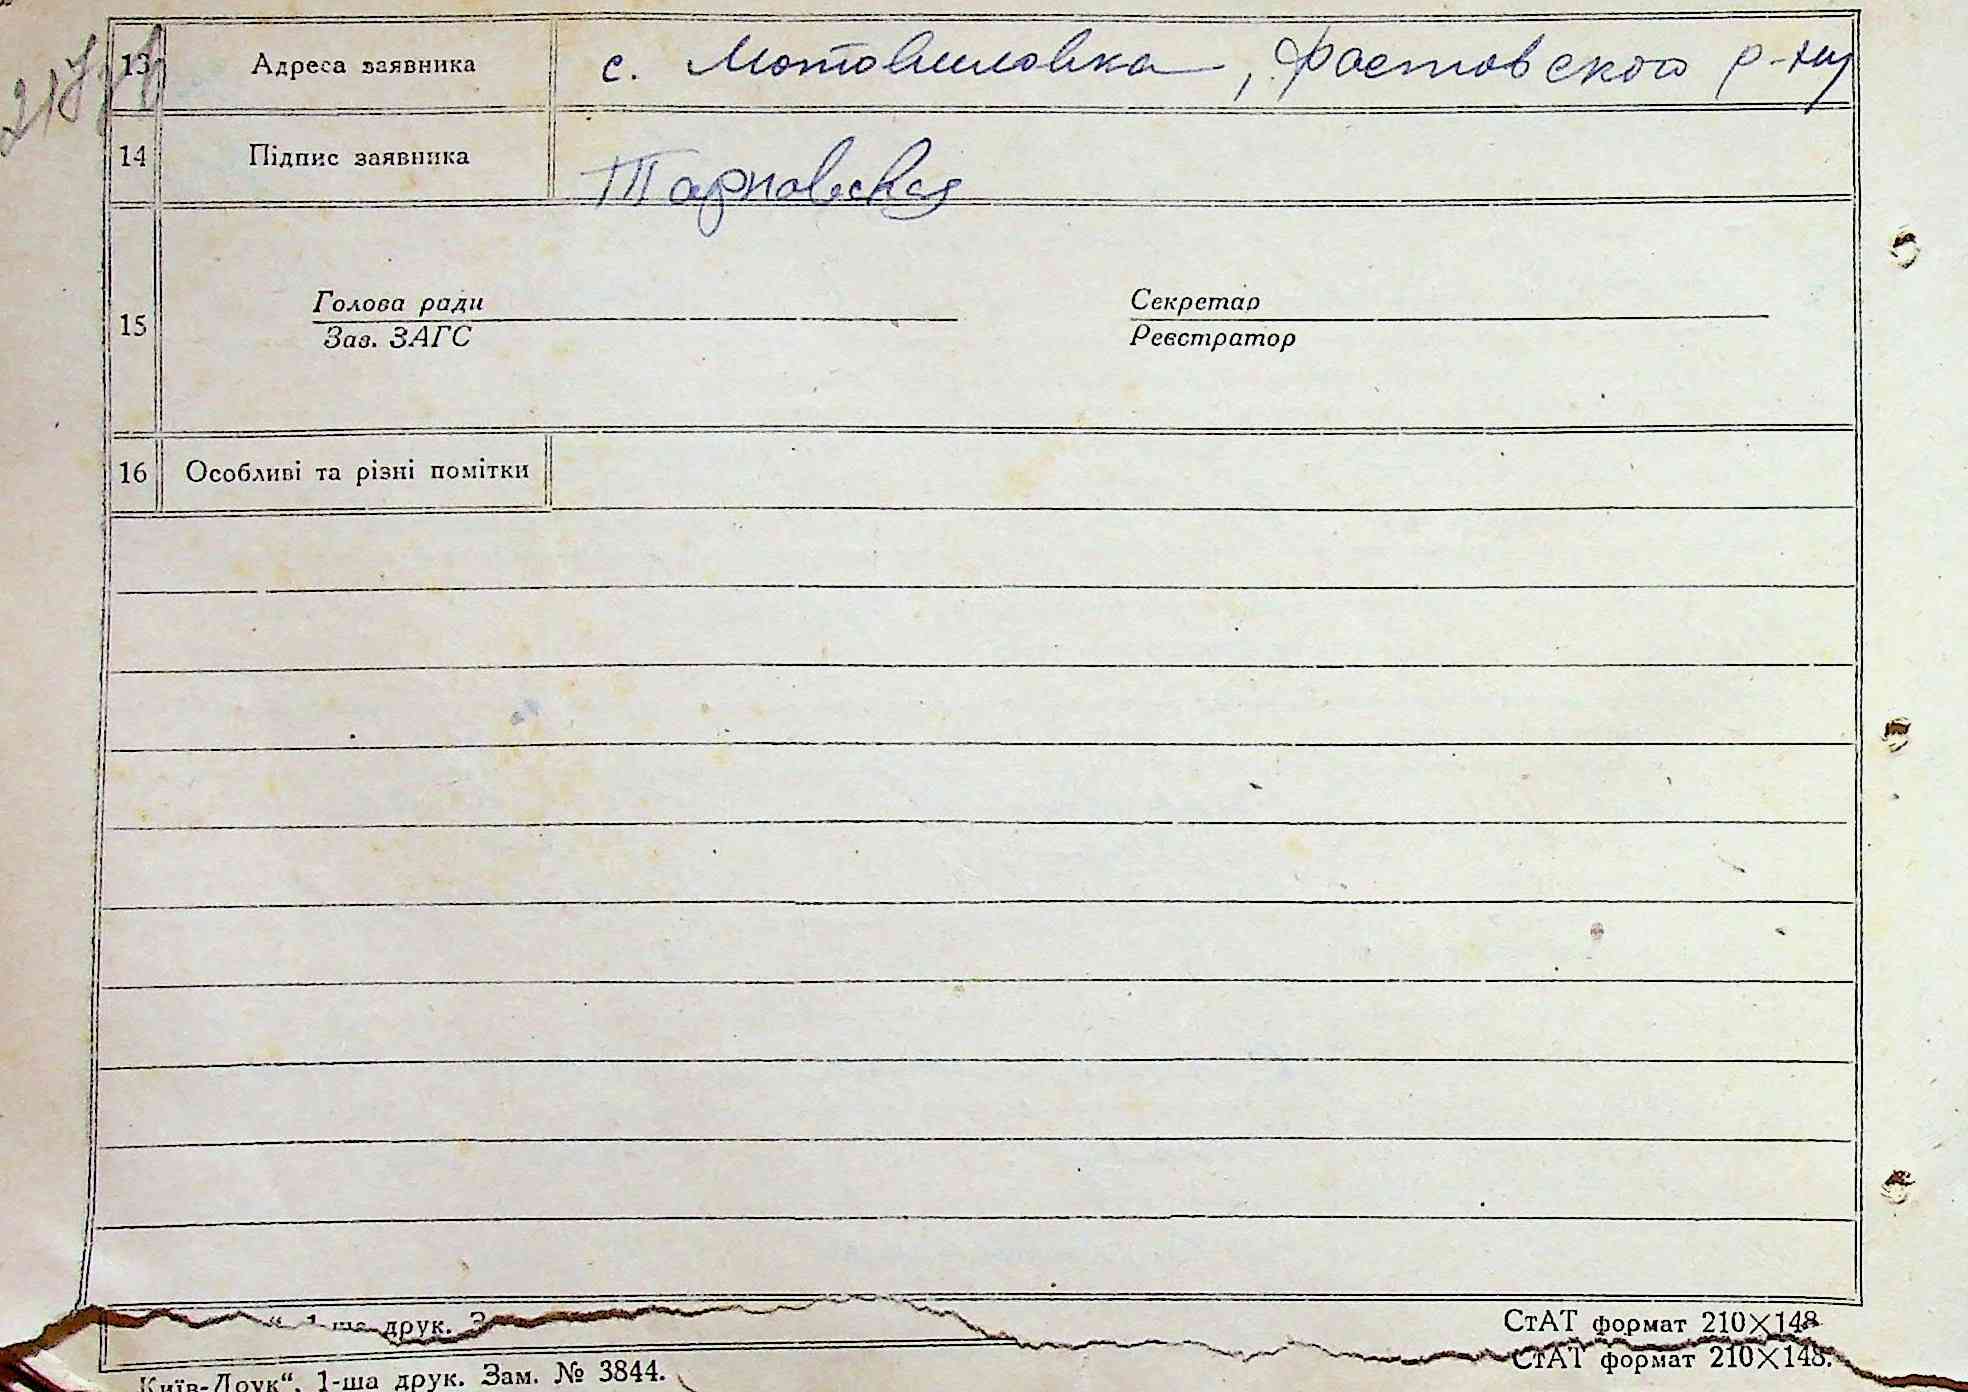 13 Адреса заявника с. Мотовиловка, Фастовского р-ну
14 Підпис заявника Тарновская
Голова ради Секретар
15
Зав. ЗАГС Реєстратор
16 Особливі та різні помітки
1-ша друк. СтАТ формат 210×148
„Київ-Друк“, 1-ша друк. Зам. № 3844. СтАТ формат 210×148.